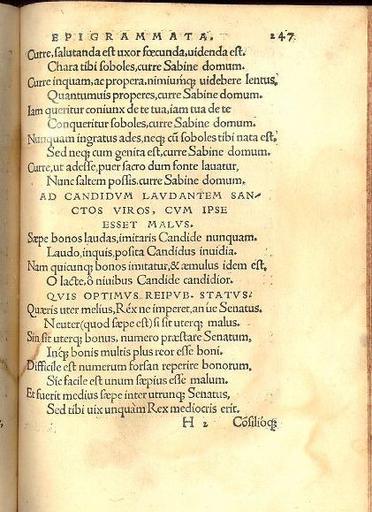 EPIGRAMMATA. 247
Curre, salutanda est uxor fœcunda, uidenda est.
Chara tibi soboles, curre Sabine domum.
Curre inquam, ac propera, nimiumq́; uidebere lentus,
Quantumuis properes, curre Sabine domum.
Iam queritur coniunx de te tua, iam tua de te
Conqueritur soboles, curre Sabine domum.
Nunquam ingratus ades, neq; cū soboles tibi nata est,
Sed neq; cum genita est, curre Sabine domum.
Curre, ut adesse, puer sacro dum fonte lauatur,
Nunc saltem possis, curre Sabine domum.
AD CANDIDVM LAVDANTEM SAN-
CTOS VIROS, CVM IPSE
ESSET MALVS.
Sæpe bonos laudas, imitaris Candide nunquam.
Laudo, inquis, posita Candidus inuidia.
Nam quicunq; bonos imitatur, & æmulus idem est,
O lacte, ô niuibus Candide candidior.
QVIS OPTIMVS REIPVB. STATVS.
Quæris uter melius, Réx ne imperet, an ue Senatus.
Neuter (quod sæpe est) si sit uterq; malus.
Sin sit uterq; bonus, numero præstare Senatum,
Inq́; bonis multis plus reor esse boni.
Difficile est numerum forsan reperire bonorum,
Sic facile est unum sæpius esse malum.
Et fuerit medius sæpe inter utrunq; Senatus,
Sed tibi uix unquàm Rex mediocris erit.
H 2 Cōsilioq́;